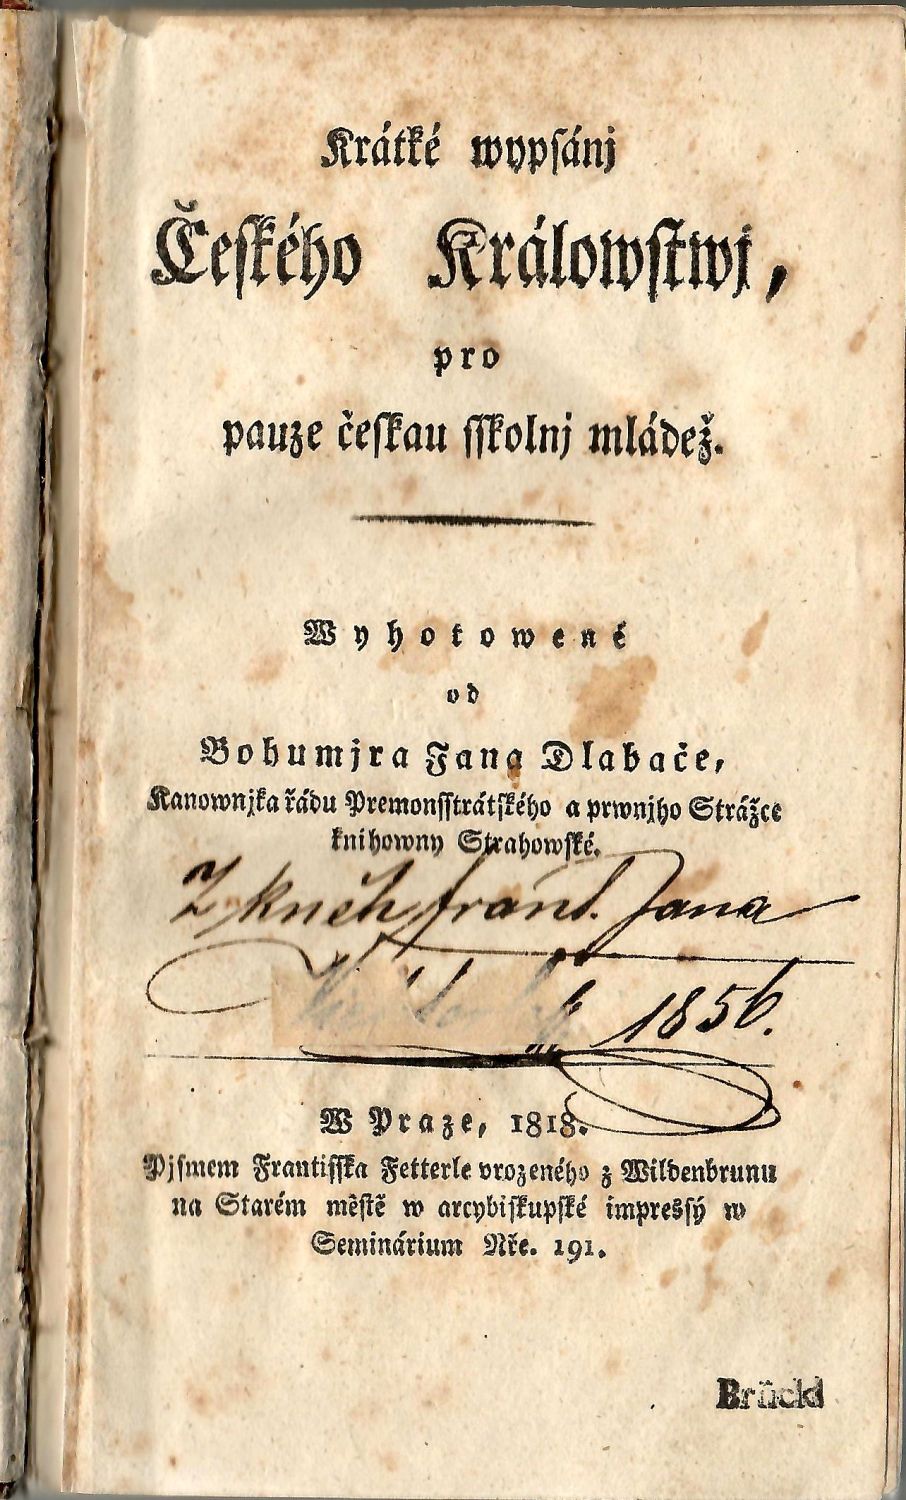 Krátké wypsánj
Českého Králowstwj,
pro
pauze českau sskolnj mládež.
Wyhotowené
od
Bohumjra Jana Dlabače,
Kanownjka řádu Premonsstrátského a prwnjho Strážce
knihowny Strahowské.
Z kněh frant. Jana
1856.
W Praze, 1818.
Pjsmem Frantisska Fetterle vrozeného z Wildenbrunu
na Starém městě w arcybiskupské impressý w
Seminárium Nře. 191.